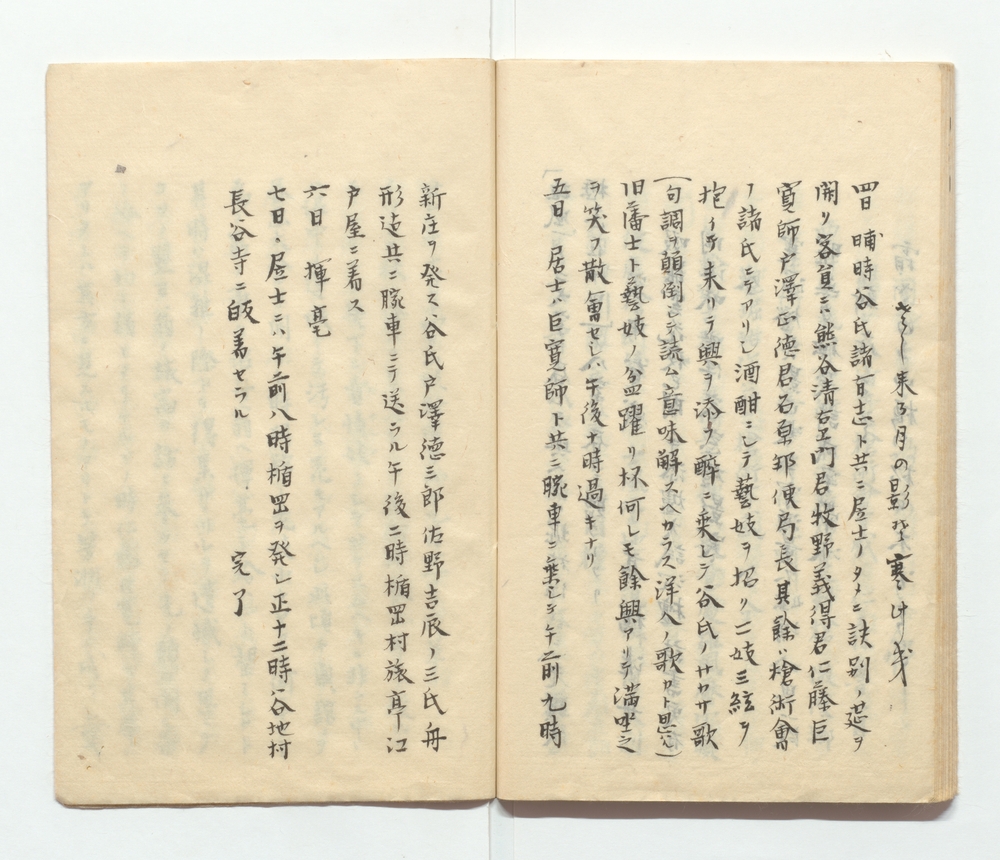 さし来る月の影そ寒け幾
四日 晡時谷氏諸有志ト共ニ居士ノタメニ訣別ノ莚ヲ
開ク客員ニハ熊谷清右エ門君牧野義得君仁藤巨
寛師戸澤正徳君石原郵便局長其餘ハ槍術會
ノ諸氏ニテアリシ酒酣ニシテ藝妓ヲ招ク二妓三絃ヲ
抱イテ来リテ興ヲ添フ酔ニ乗シテ谷氏ノサカサ歌
(句調ヲ顛倒シテ読ム意味解スヘカラス洋人ノ歌カト思ハル)
旧藩士ト藝妓ノ盆躍リ杯何レモ餘興アリテ満坐之
ヲ笑フ散會セシハ午後十時過キナリ
五日 居士ハ巨寛師ト共ニ腕車ニ乗シテ午前九時
新庄ヲ発ス谷氏戸澤徳三郎佐野吉辰ノ三氏舟
形迠共ニ腕車ニテ送ラル午後二時楯岡村旅亭江
戸屋ニ着ス
六日 揮毫
七日、居士ニハ午前八時楯岡ヲ発シ正十二時谷地村
長谷寺ニ皈着セラル 完了